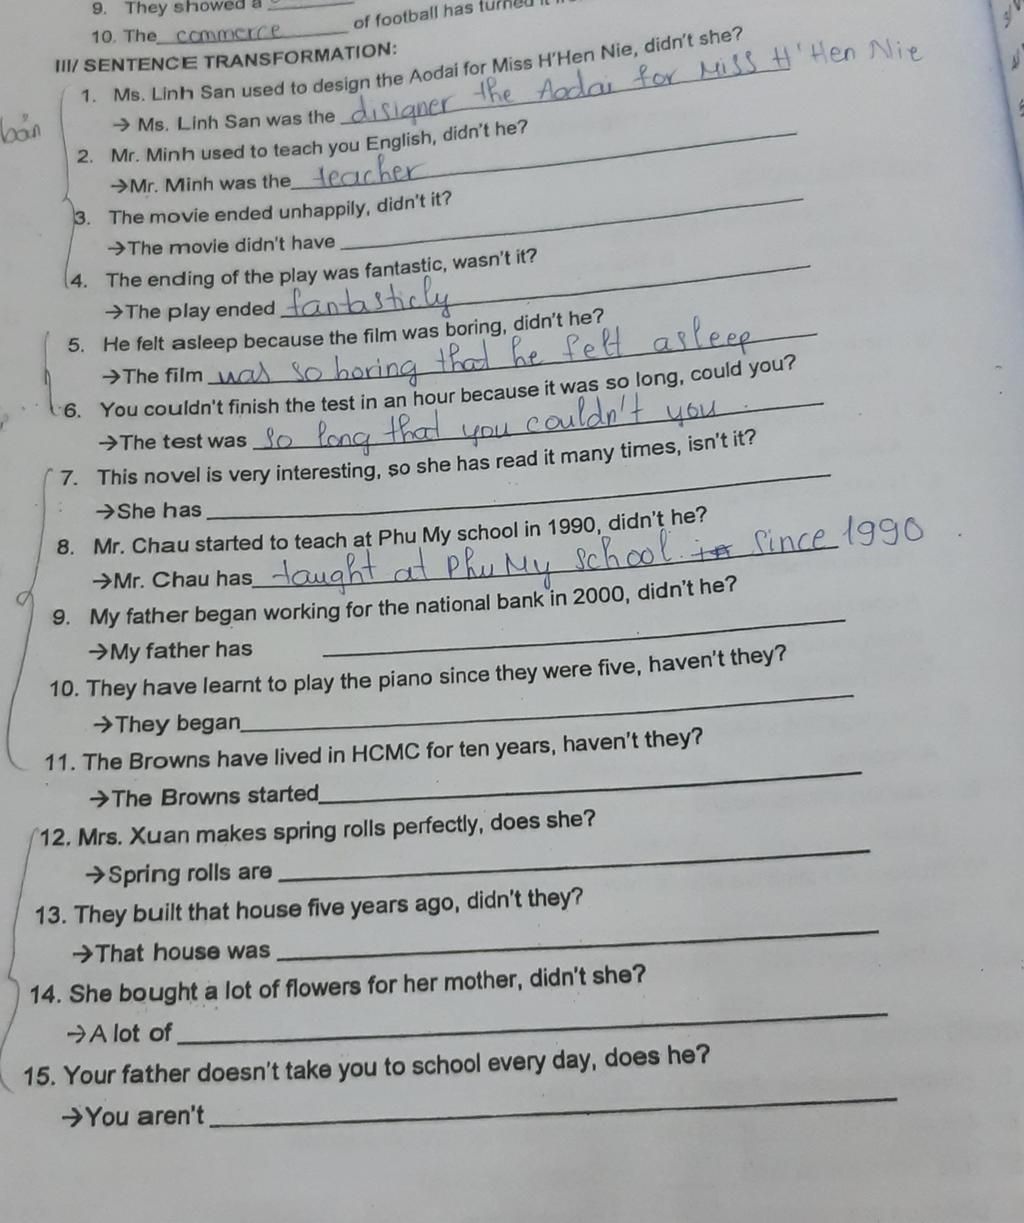 9. They showed a
10. The commerce of football has turned it
III/ SENTENCE TRANSFORMATION:
1. Ms. Linh San used to design the Aodai for Miss H'Hen Nie, didn't she?
→ Ms. Linh San was the disigner the Aodai for Miss H'Hen Nie
bản
2. Mr. Minh used to teach you English, didn't he?
→Mr. Minh was the teacher
3. The movie ended unhappily, didn't it?
→The movie didn't have
4. The ending of the play was fantastic, wasn't it?
→The play ended fantasticly
5. He felt asleep because the film was boring, didn't he?
→The film was so boring that he felt asleep
6. You couldn't finish the test in an hour because it was so long, could you?
→The test was so long that you couldn't you
7. This novel is very interesting, so she has read it many times, isn't it?
→She has
8. Mr. Chau started to teach at Phu My school in 1990, didn't he?
→Mr. Chau has taught at Phu My school since 1990
9. My father began working for the national bank in 2000, didn't he?
→My father has
10. They have learnt to play the piano since they were five, haven't they?
→They began
11. The Browns have lived in HCMC for ten years, haven't they?
→The Browns started
12. Mrs. Xuan makes spring rolls perfectly, does she?
→Spring rolls are
13. They built that house five years ago, didn't they?
→That house was
14. She bought a lot of flowers for her mother, didn't she?
→A lot of
15. Your father doesn't take you to school every day, does he?
→You aren't